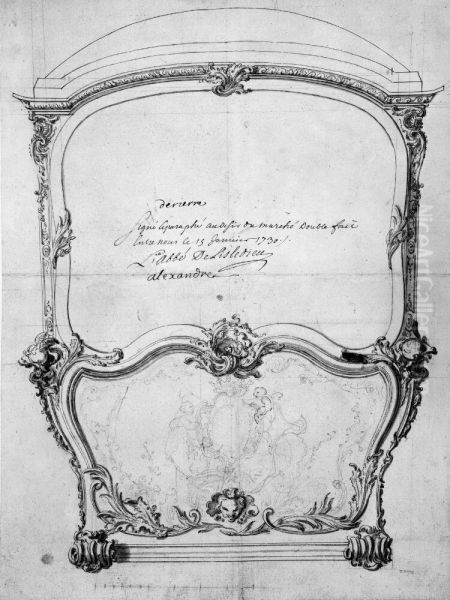 derierre
Signé & paraphé au desir du marché Double fait
Entre nous le 15 Janvier 1730 /.
L'abbé De Lisledieu
alexandre
NiceArtGallery